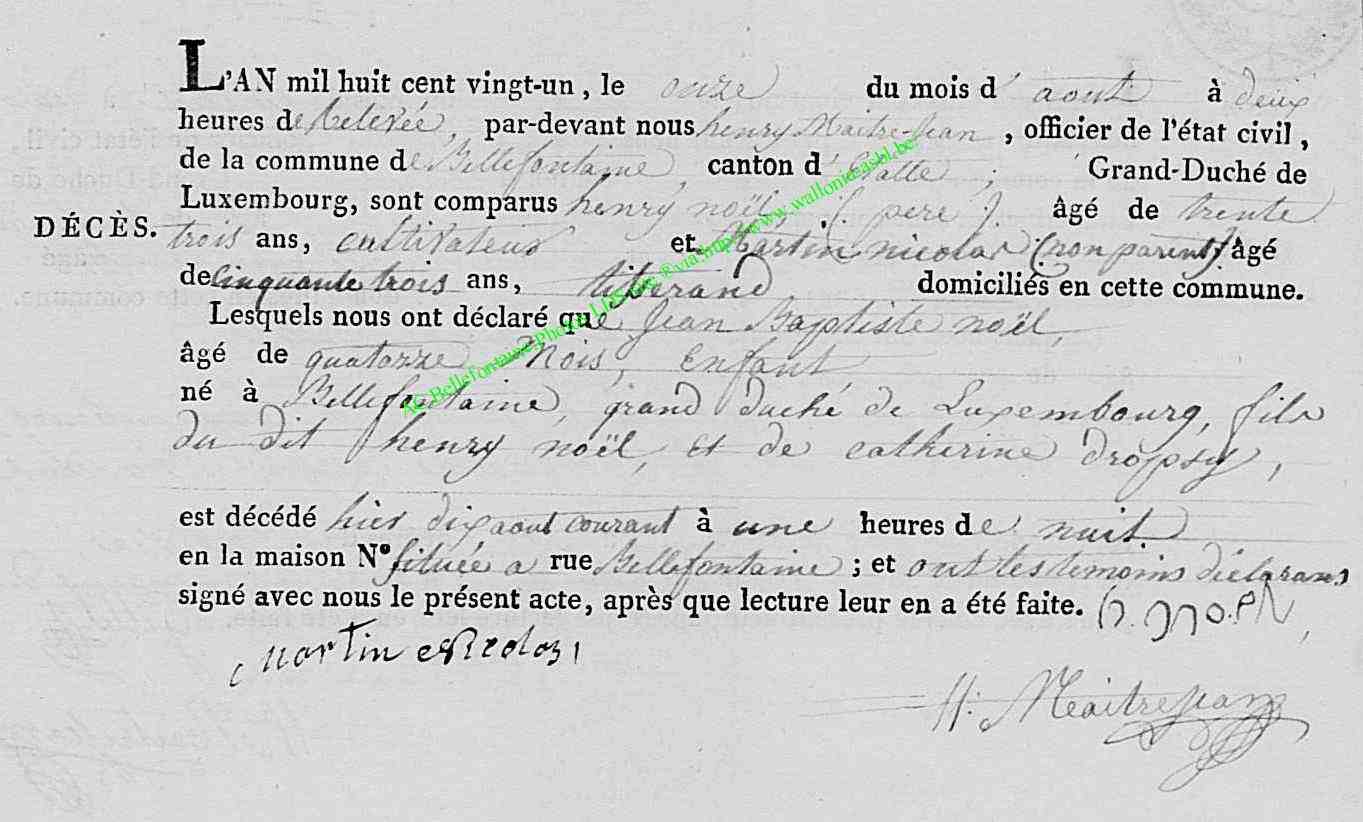 L'AN mil huit cent vingt-un, le onze du mois d' aout à deux
heures de Relevée, par-devant nous henry Maitre-Jean, officier de l'état civil,
de la commune de Bellefontaine, canton d' Etalle, Grand-Duché de
Luxembourg, sont comparus henry noël, (pere) âgé de trente
DÉCÈS. trois ans, cultivateur et Martin nicolas (non parent) âgé
de cinquante trois ans, tisserand domiciliés en cette commune.
Lesquels nous ont déclaré que Jean Baptiste noël,
âgé de quatorze Mois, enfant,
né à Bellefontaine, grand duché de Luxembourg, fils
du dit henry noël, et de catherine dropsy,
est décédé hier dix aout courant à une heures de nuit
en la maison N° située a rue Bellefontaine; et ont les temoins déclarans
signé avec nous le présent acte, après que lecture leur en a été faite. h. noel,
Martin Nicolas,
H. Maitrejean